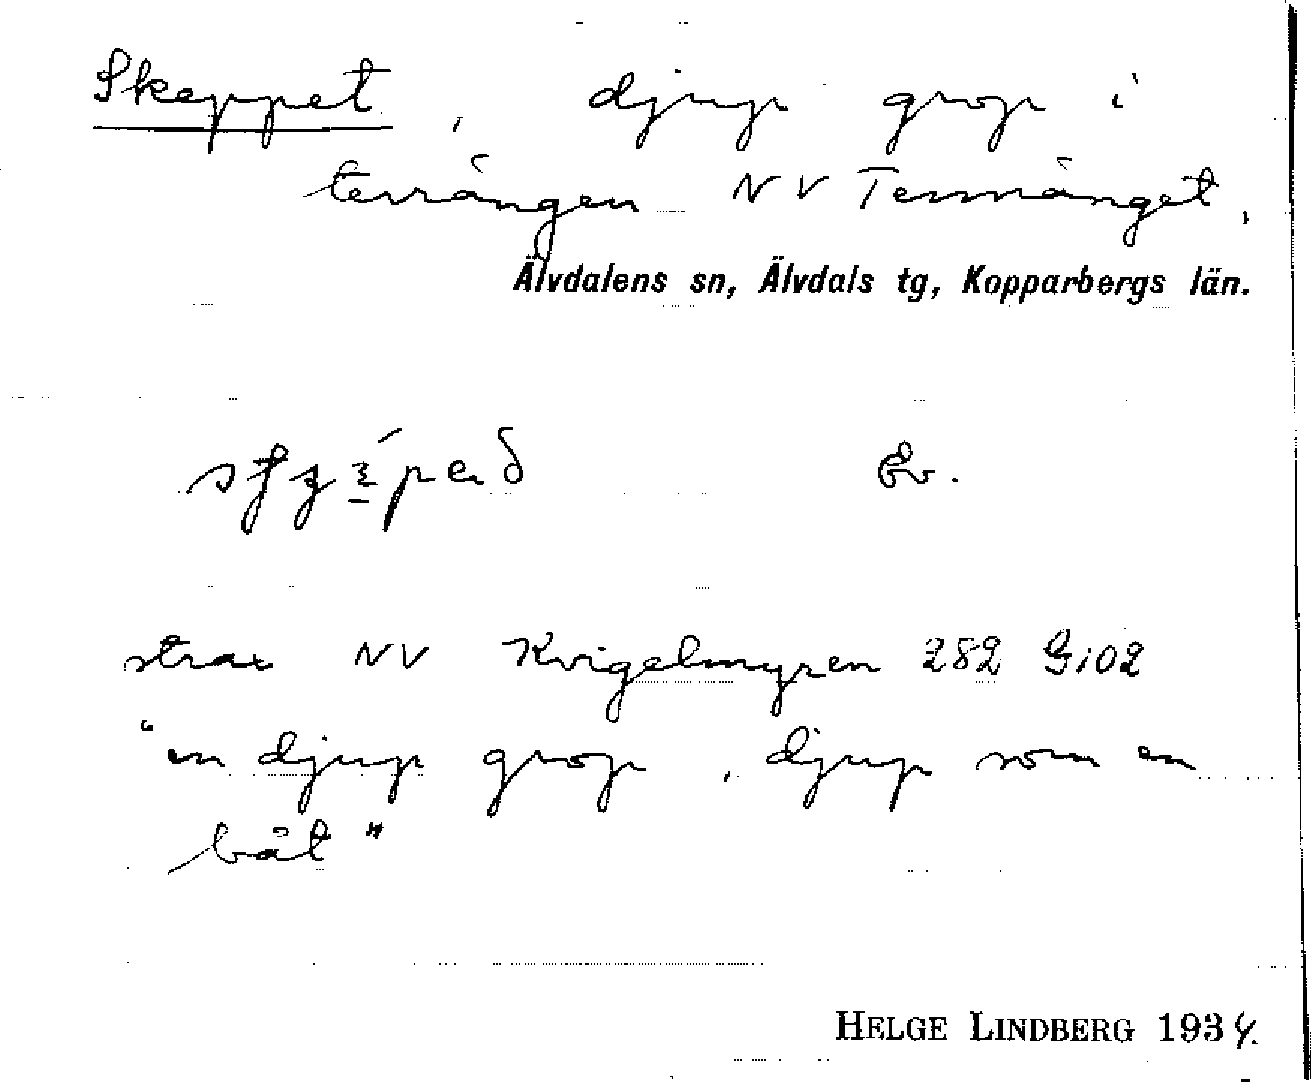 Skeppet, djup grop i
terrängen NV Tennänget,
Älvdalens sn, Älvdals tg, Kopparbergs län.
Ev.
strax NV Kvigelmyren 282 Gi02
"en djup grop, djup som en
båt"
HELGE LINDBERG 1934.